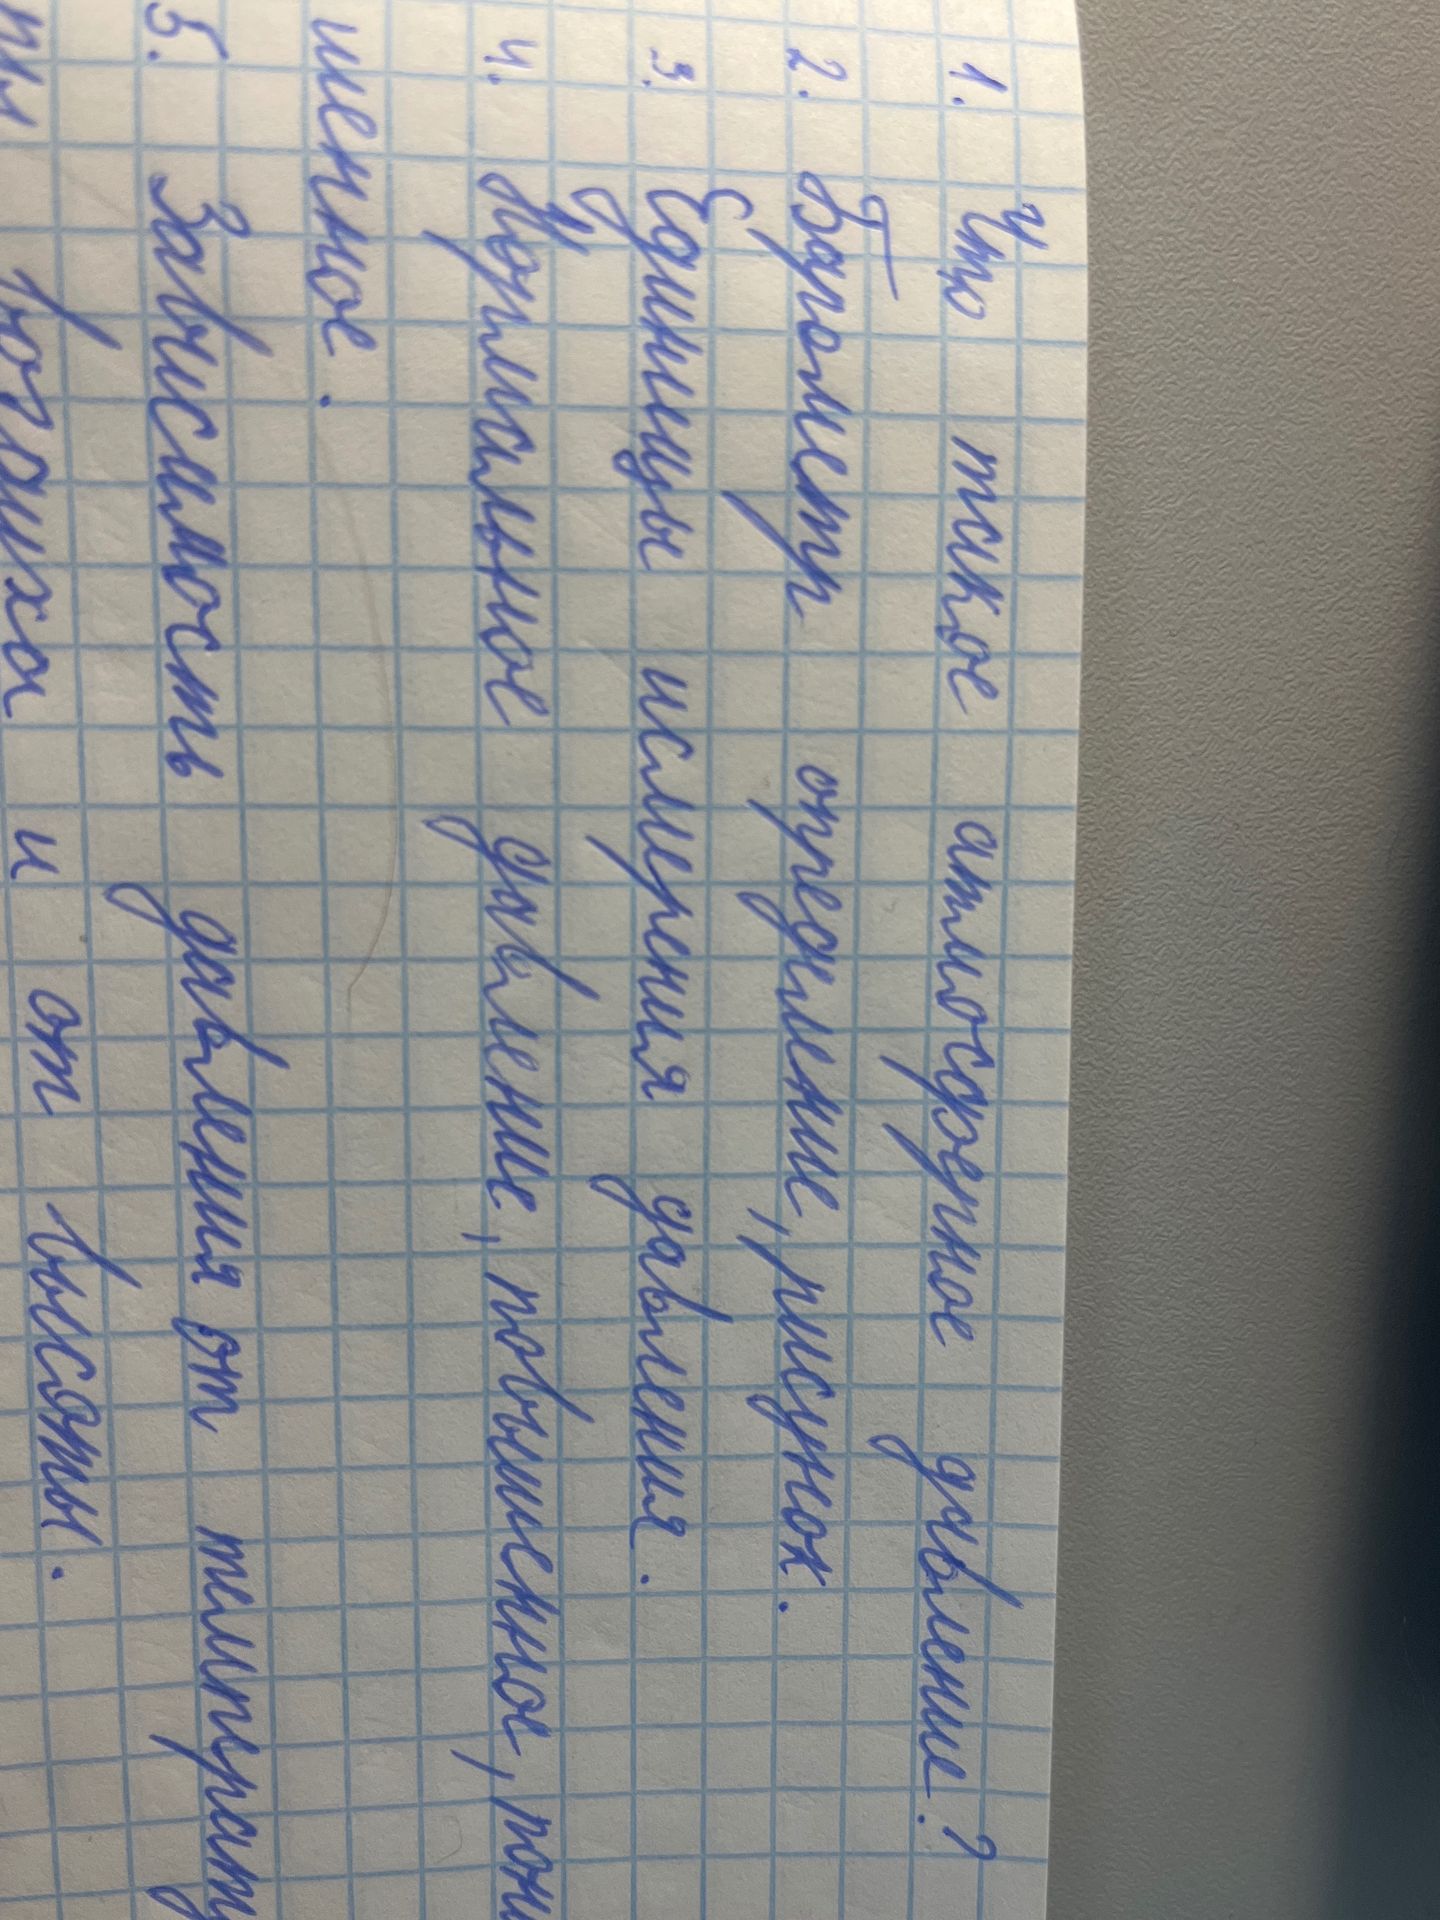 1. Что такое атмосферное давление?
2. Барометр определение, рисунок.
3. Единицы измерения давления.
4. Нормальное давление, повышенное, пони
женное.
5. Зависимость давления от температу
ры воздуха и от высоты.